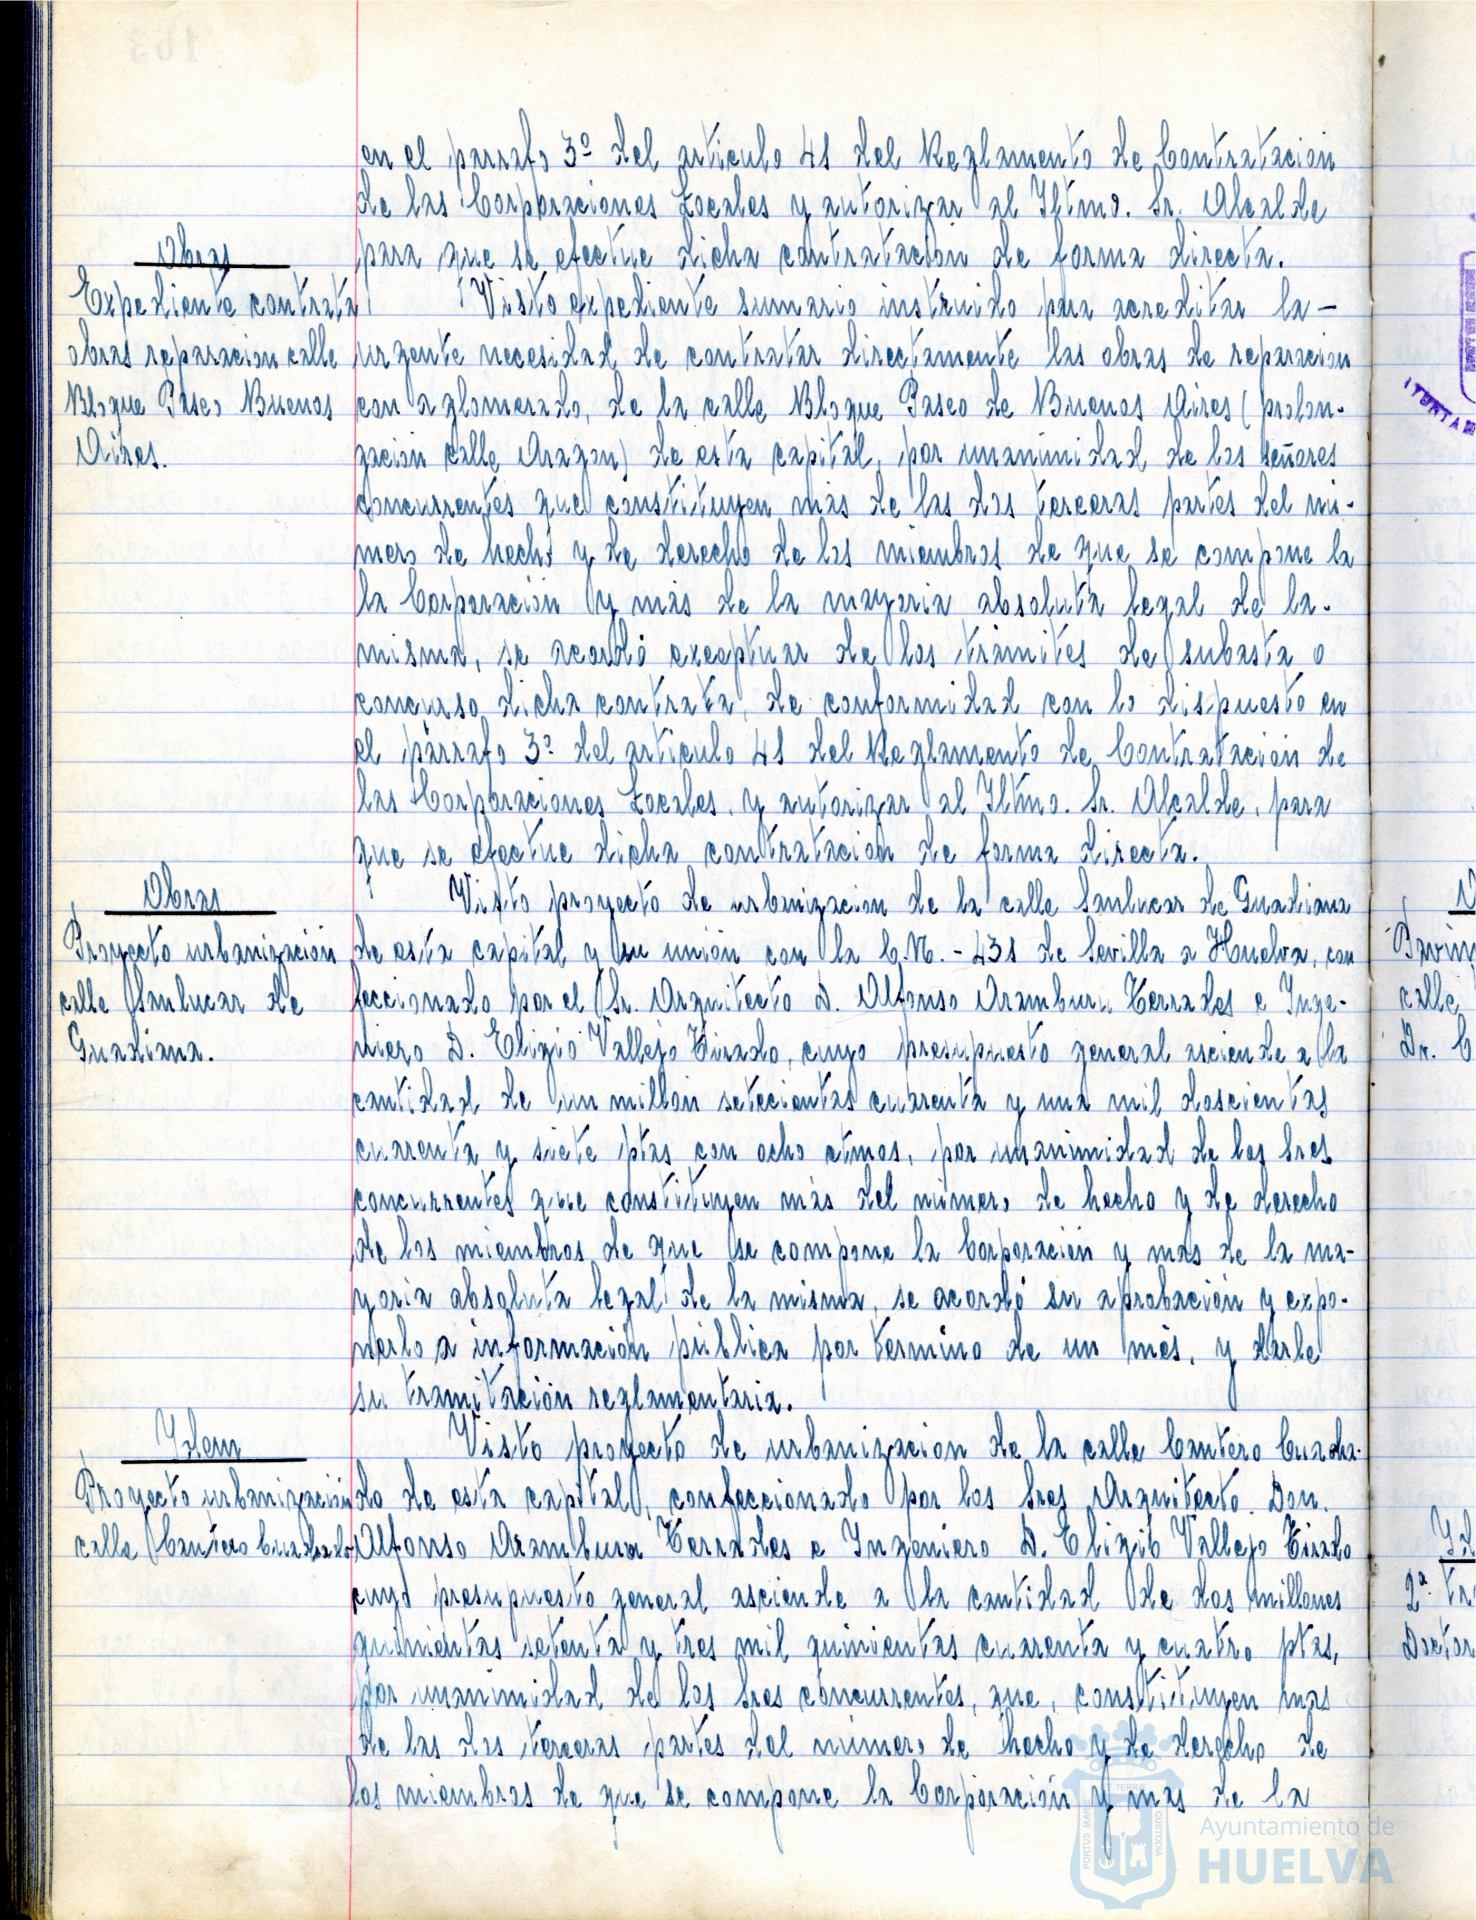 en el parrafo 3º del articulo 41 del Reglamento de Contratacion
de las Corporaciones Locales y autorizar al Iltmo. Sr. Alcalde
para que se efectue dicha contratación de forma directa.
Obras
Expediente contrata
obras reparacion calle
Bloque Paseo Buenos
Aires.
Visto expediente sumario instruido para acreditar la-
urgente necesidad de contratar directamente las obras de reparacion
con aglomerado, de la calle Bloque Paseo de Buenos Aires (prolon-
gación calle Aragon) de esta capital, por unanimidad de los señores
concurrentes que constituyen más de las dos terceras partes del nú-
mero de hecho y de derecho de los miembros de que se compone la
la Corporación y más de la mayoria absoluta legal de la-
misma, se acordó exceptuar de los trámites de subasta o
concurso dicha contrata, de conformidad con lo dispuesto en
el párrafo 3º del articulo 41 del Reglamento de Contratación de
las Corporaciones Locales, y autorizar al Iltmo. Sr. Alcalde, para
que se efectue dicha contratación de forma directa.
Obras
Proyecto urbanización
calle Sanlucar de
Guadiana.
Visto proyecto de urbanizacion de la calle Sanlucar de Guadiana
de esta capital y su unión con la C.N.-431 de Sevilla a Huelva, con
feccionado por el Sr. Arquitecto D. Alfonso Aramburu Terrades e Inge-
niero D. Eligio Vallejo Tirado, cuyo presupuesto general asciende a la
cantidad de un millón setecientas cuarenta y una mil doscientas
cuarenta y siete ptas con ocho ctmos, por unanimidad de los Sres
concurrentes que constituyen más del número de hecho y de derecho
de los miembros de que se compone la Corporación y mas de la ma-
yoria absoluta legal de la misma, se acordó su aprobación y expo-
nerlo a información pública por termino de un més, y darle
su tramitación reglamentaria.
Idem
Proyecto urbanización
calle Cantero Cuadrado
Visto proyecto de urbanización de la calle Cantero Cuadra-
do de esta capital, confeccionado por los Sres Arquitecto Don.
Alfonso Aramburu Terrades e Ingeniero D. Eligio Vallejo Tirado
cuyo presupuesto general asciende a la cantidad de dos millones
quinientas setenta y tres mil quinientas cuarenta y cuatro ptas,
por unanimidad de los Sres concurrentes, que, constituyen mas
de las dos terceras partes del número de hecho y de derecho de
los miembros de que se compone la Corporación y mas de la
calle
Dr. C
2ª
Doctor
Ayuntamiento de
HUELVA